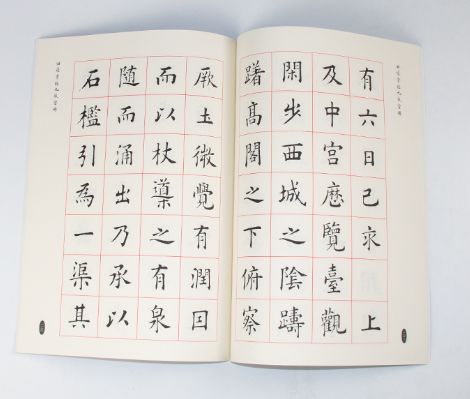 有六日己亥 上
及中宫歷覽臺觀
閑步西城之陰躊
躇高閣之下俯察
厥土微覺有潤因
而以杖導之有泉
随而涌出乃承以
石檻引為一渠其